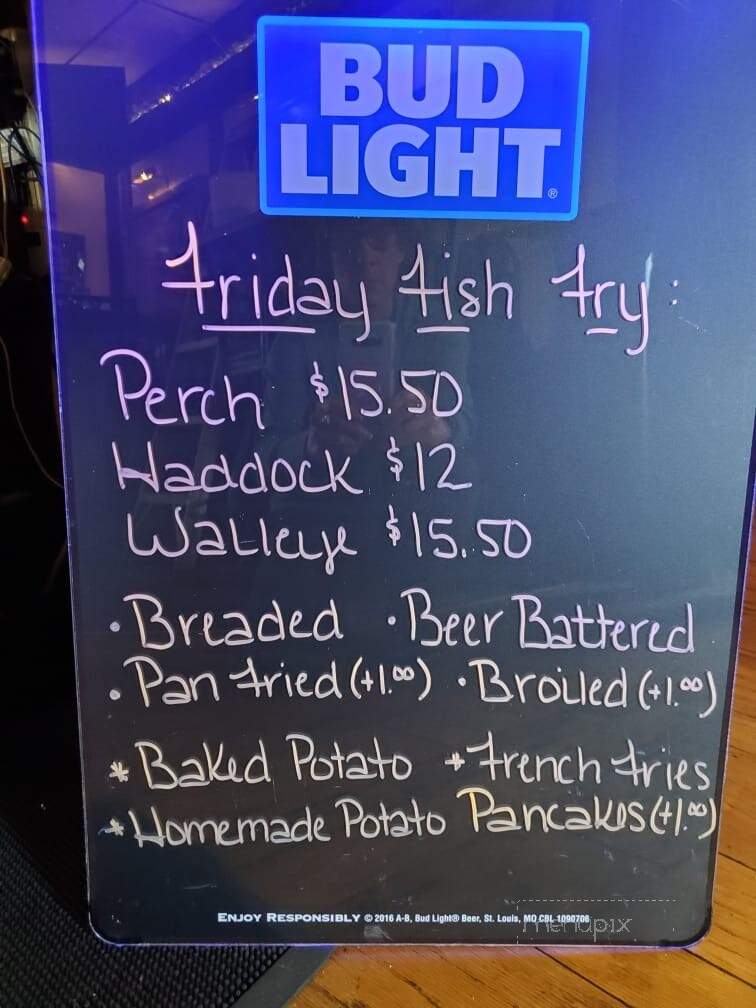 BUD
LIGHT®
Friday Fish Fry:
Perch $15.50
Haddock $12
Walleye $15.50
• Breaded • Beer Battered
• Pan Fried (+1.00) • Broiled (+1.00)
* Baked Potato * French Fries
* Homemade Potato Pancakes (+1.00)
ENJOY RESPONSIBLY © 2016 A-B, Bud Light® Beer, St. Louis, MO CBL 1090706
menupix